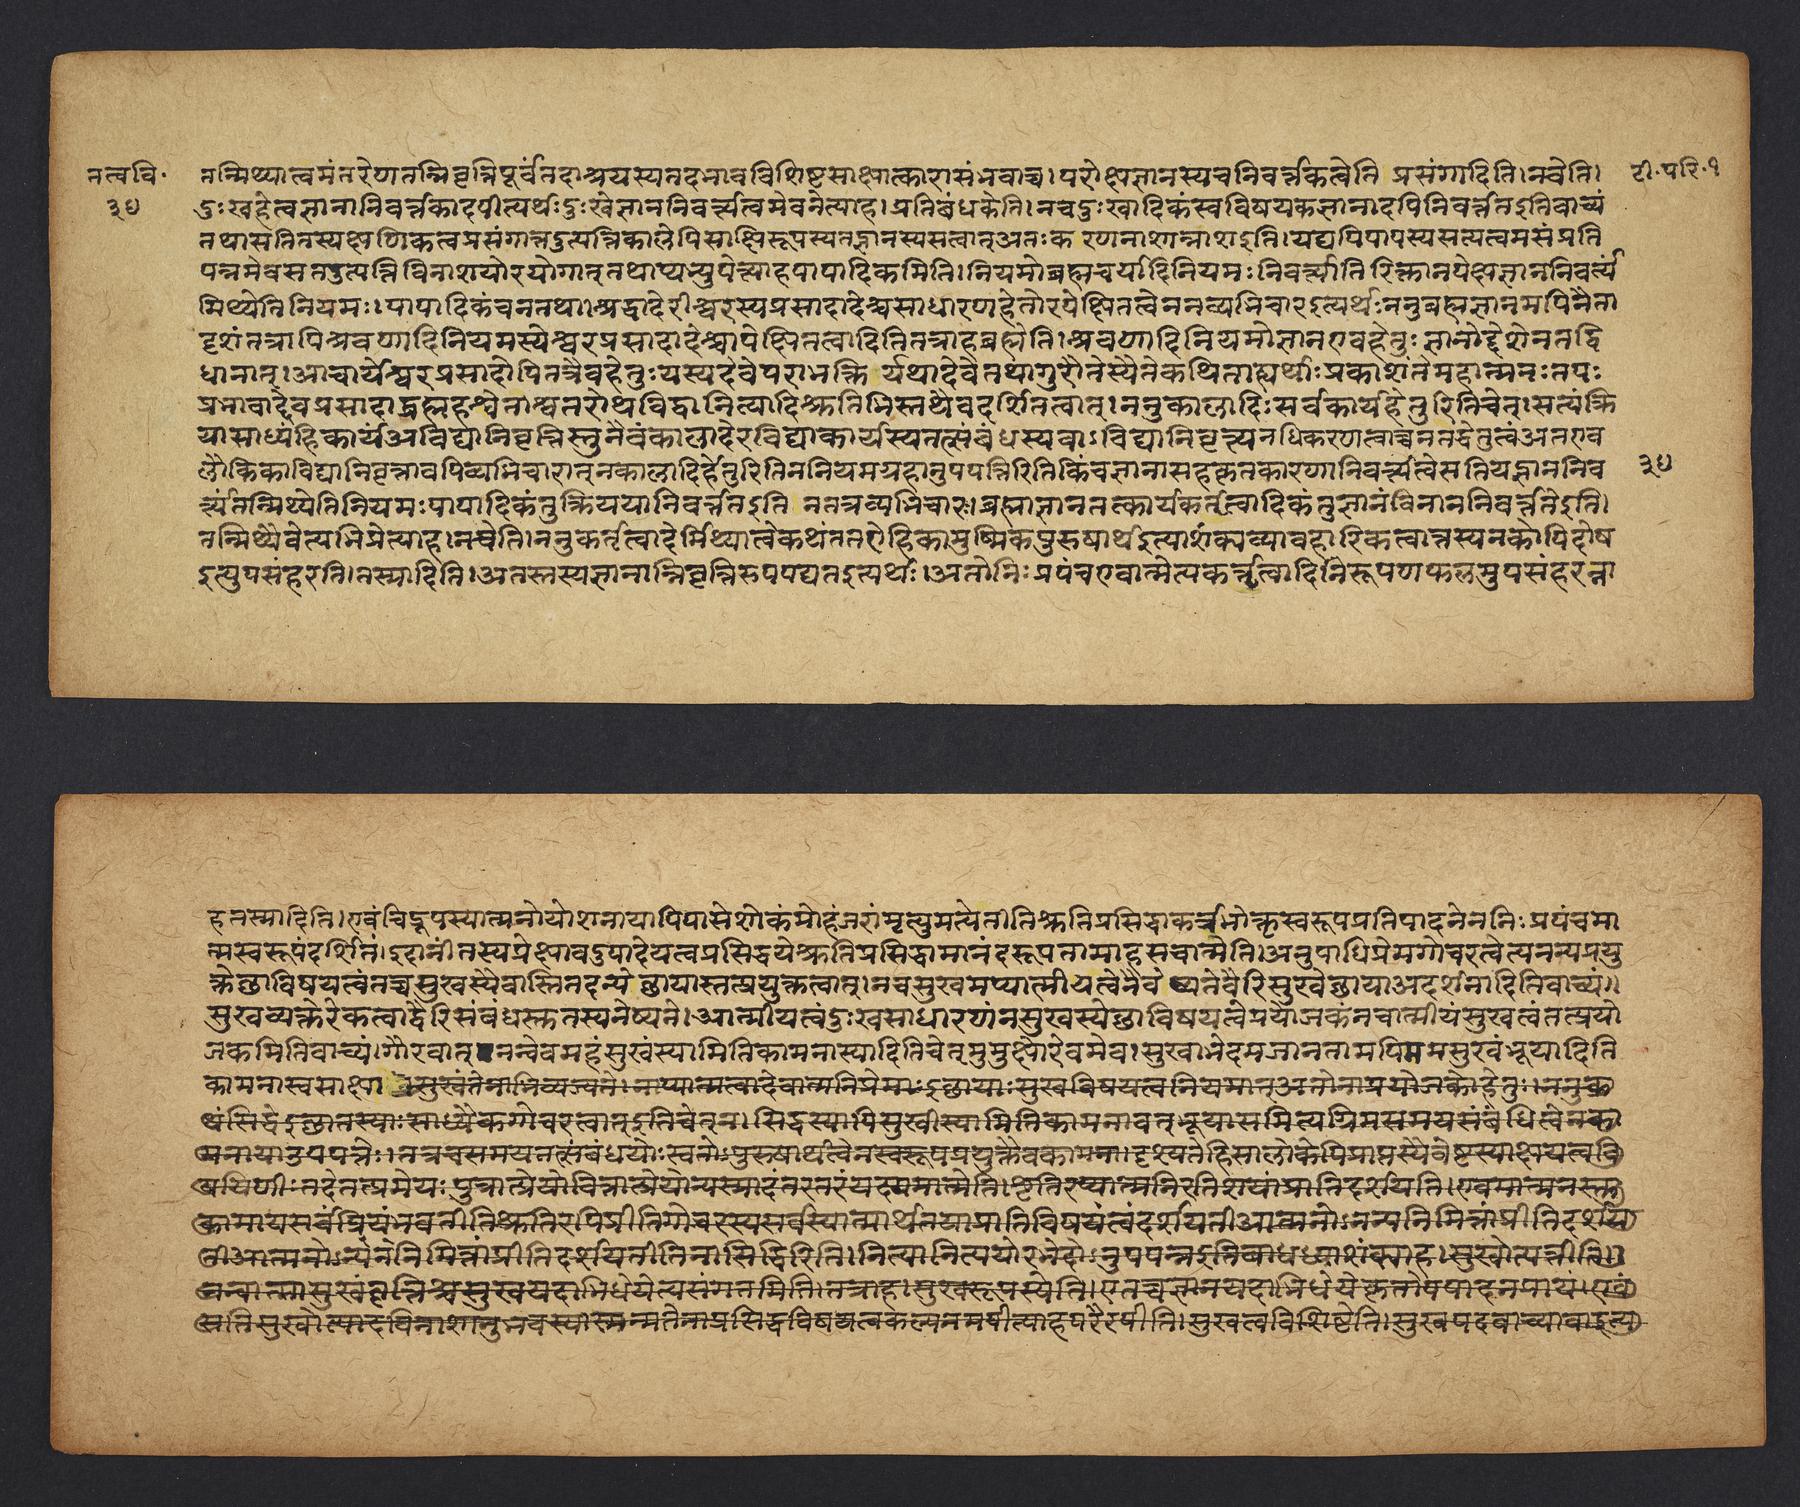 तत्वावि· तन्मिथ्यात्वमंतरेणतन्निवृत्तिपूर्वंतदाश्रयस्यतदभावविशिष्टसाक्षात्कारासंभवाच्च। परोक्षज्ञानस्यचनिवर्त्तकत्वेति प्रसंगादिति।नचेति। टी·परि·१
३५ दुःखहेत्वज्ञानानिवर्त्तकादपीत्यर्थःदुःखेज्ञाननिवर्त्यत्वमेवनेत्याह।प्रतिबंधकेति।नचदुःखादिकंस्वविषयकज्ञानादपिनिवर्त्ततइतिवाच्यं
तथासतितस्यक्षणिकत्वप्रसंगात्तदुत्पत्तिकालेपिसाक्षिरूपस्यतज्ज्ञानस्यसत्वात्अतःक रणनाशान्नाशइति।यद्यपिपापस्यसत्यत्वमसंप्रति
पन्नमेवसतउत्पत्तिविनाशयोरयोगात्तथाप्यभ्युपेत्याहपापादिकमिति।नियमोब्रह्मचर्यादिनियमःनिवर्त्यातिरिक्तानपेक्षज्ञाननिवर्त्यं
मिथ्येतिनियमः।पापादिकंचनतथा।श्रद्धादेरीश्वरस्यप्रसादादेश्चसाधारणहेतोरपेक्षितत्वेनन व्यभिचारइत्यर्थःननुब्रह्मज्ञानमपिनैता
दृशंतत्रापिश्रवणादिनियमस्येश्वरप्रसादादेश्चापेक्षितत्वादितितत्राहब्रह्मेति।श्रवणादिनियमोज्ञानएवहेतुःज्ञानोद्देशेनतद्वि
धानात्।आचार्येश्वरप्रसादोपितत्रैवहेतुःयस्यदेवेपराभक्ति र्यथादेवेतथागुरौतस्यैतेकथिताह्यर्थाःप्रकाशंतेमहात्मनःतपः
प्रभावाद्देवप्रसादाद्ब्रह्महश्वेताश्वतरोथविद्वानित्यादिश्रुतिभिस्तथैवदर्शितत्वात्।ननुकालादिःसर्वकार्यहेतुरितिचेत्।सत्यंक्रि
यासाध्यंहिकार्यंअविद्यानिवृत्तिस्तुनैवंकालादेरविद्याकार्यस्यतत्संबंधस्यवाऽविद्यानिवृत्त्यनधिकरणत्वाच्चनतद्धेतुत्वंअतएव
लौकिकाविद्यानिवृत्तावपिव्यभिचारात्नकालादिर्हेतुरितिननियमग्रहानुपपत्तिरितिकिंचज्ञानासहकृतकारणानिवर्त्यत्वेसतियज्ज्ञाननिव ३५
र्त्यंतन्मिथ्येतिनियमःपापादिकंतुक्रिययानिवर्त्ततइति नतत्रव्यभिचारः।ब्रह्माज्ञानतत्कार्यकर्तृत्वादिकंतुज्ञानंविनाननिवर्त्ततेइति।
तन्मिथ्यैवेत्यभिप्रेत्याह।नचेति।ननुकर्तृत्वादेर्मिथ्यात्वेकथंततऐहिकामुष्मिकपुरुषार्थइत्याशंक्यव्यावहारिकत्वात्तस्यनकोपिदोष
इत्युपसंहरति।तस्मादिति।अतस्तस्यज्ञानान्निवृत्तिरुपपद्यतइत्यर्थः।अतोनिःप्रपंचएवात्मेत्यकर्त्तृत्वादिनिरूपणफलमुपसंहरन्ना
हतस्मादिति।एवंचिद्रूपस्यात्मनोयोशनायापिपासेशोकंमोहंजरांमृत्युमत्येतीतिश्रुतिप्रसिद्धाकर्त्रभोक्तृस्वरूपप्रतिपादनेननिःप्रपंचमा
त्मस्वरूपंदर्शितं।इदानींतस्यप्रेक्षावदुपादेयत्वप्रसिद्धयेश्रुतिप्रसिद्धामानंदरूपतामाहसचात्मेति।अनुपाधिप्रेमगोचरत्वेत्यनन्यप्रयु
क्तेछाविषयत्वंतच्चसुखस्यैवास्तितदन्ये छायास्तत्प्रयुक्तत्वात्।नचसुखमप्यात्मीयत्वेनैवे ष्यतेवैरिसुखेछायाअदर्शनादितिवाच्यं॥
सुखव्यक्तेरेकत्वाद्वैरिसंबंधस्तुतस्यनेष्यते।आत्मीयत्वंदुःखसाधारणंनसुखस्येछाविषयत्वेप्रयोजकंनचात्मीयंसुखत्वंतत्प्रयो
जकमितिवाच्यं।गौरवात् नन्वेवमहंसुखंस्यामितिकामनास्यादितिचेत्मुमुक्षोरेवमेव।सुखाभेदमजानतामपिममसुखंभूयादिति
कामनास्वसाक्षा सुखंतेनाभिव्यज्यते।नाप्यात्मत्वादेवात्मनिप्रेमाःइछायाःसुखविषयत्वनियमात्अतोनाप्रयोजकोहेतुः।ननुक
थंसिद्धेइछातस्याःसाध्यैकगोचरत्वात्इतिचेत्न।सिद्धस्यापिसुखीस्यामितिकामनावत्भूयासमित्यग्रिमसमयसंबंधित्वेनका
मनायाउपपत्तेः।नत्रचसमयतत्संबंधयोःस्वतोऽपुरुषार्थत्वेनस्वरूपप्रयुक्तैवकामना।दृश्यतेहिसालोकेपिप्राप्तस्यैवेष्टस्याक्षयत्ववि
षयिणी·तदेतत्प्रेयःपुत्रात्प्रेयोवित्तात्प्रेयोन्यस्मादंतरतरंयदयमात्मेति।श्रुतिरप्यात्मनिरतिशयांप्रीतिंदर्शयति।एवमात्मनस्तु
कामायसर्वंप्रियंभवतीतिश्रुतिरपिप्रीतिगोचरस्यसर्वस्यात्मार्थतयाप्रीतिविषयत्वंदर्शयतीआत्मनोऽनन्यनिमित्तांप्रीतिंदर्शय
तीआत्मनोऽनन्येनिमित्तांप्रीतिंदर्शयतीतिनासिद्धिरिति।नित्यानित्ययोरभेदोऽनुपपन्नइतिबाधमाशंक्याह।सुखोत्पत्तीति।
नन्वात्मासुखंवृत्तिश्चसुखपदाभिधेयेत्यसंगतमिति।तत्राह।सुखरूपस्येति।एतच्चज्ञानपदाभिधेयेक्तोपपादनप्रायं।एवं
सतिसुखोत्पादविनाशानुभवस्यास्मन्मतेनाप्रसिद्धविषयत्वकल्पनमपीत्याहपरैरपीति।सुखत्वविशिष्टेति।सुखपदवाच्यावाइत्यु